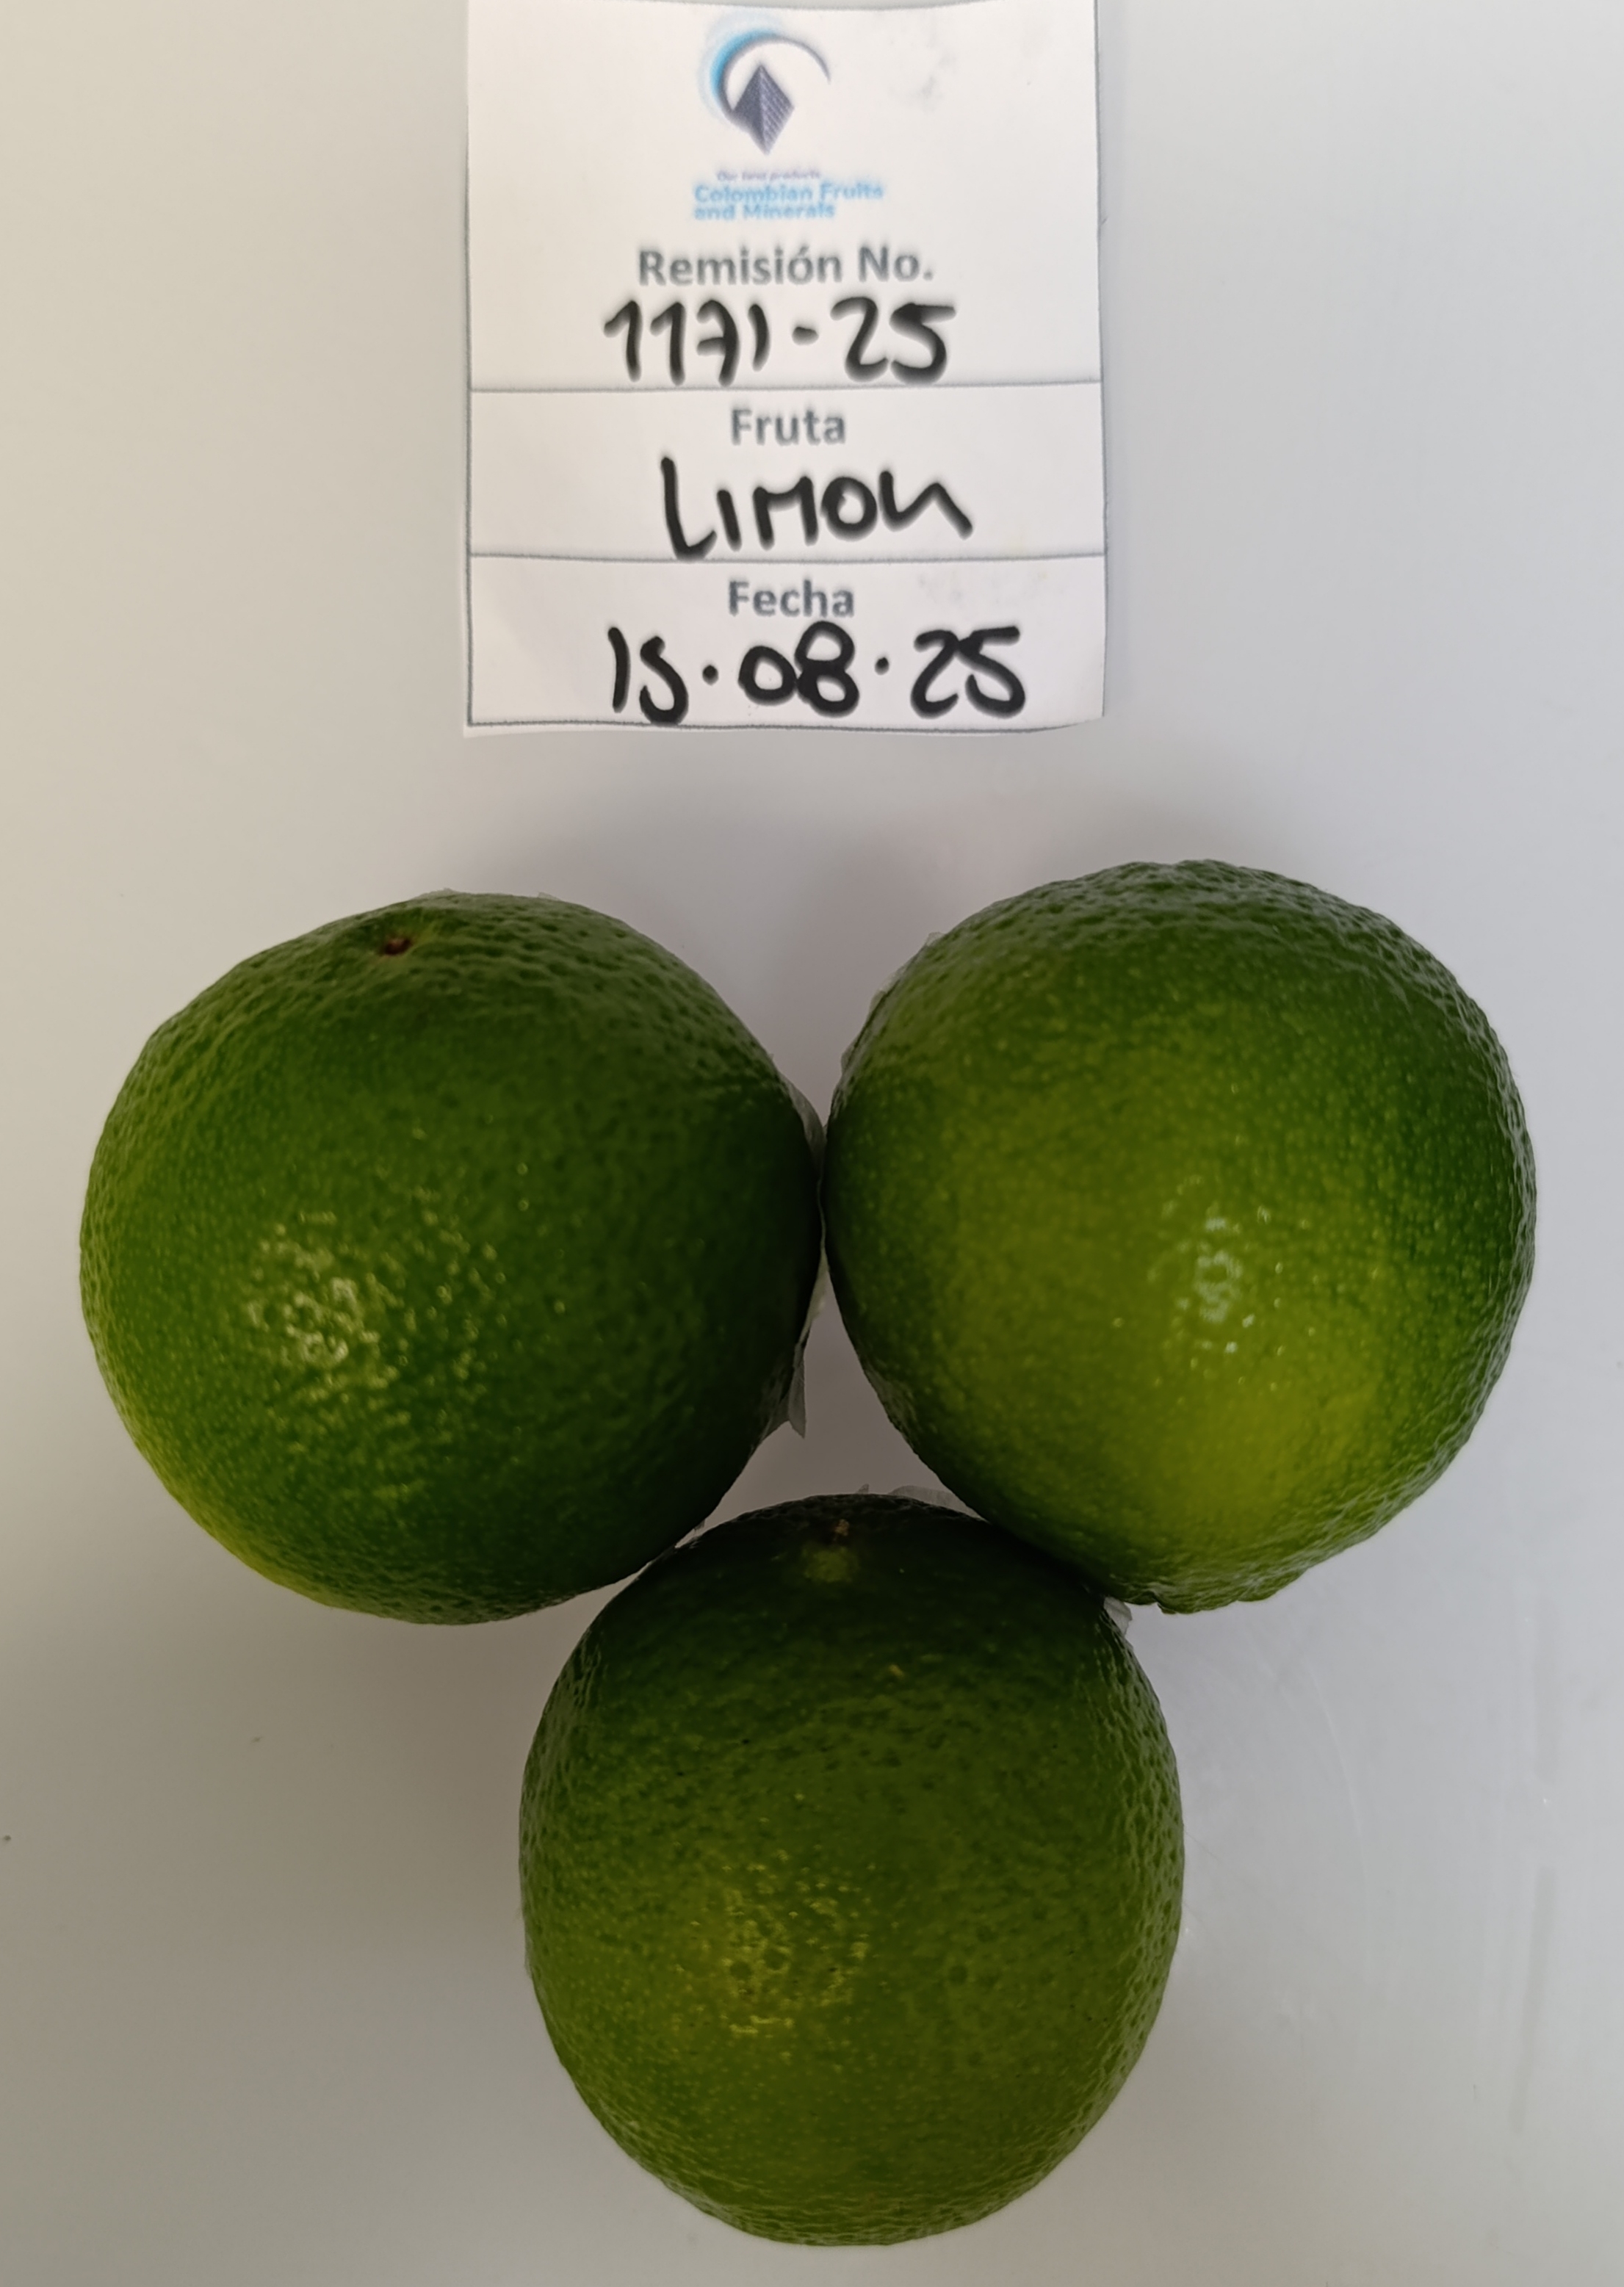 Our best products
Colombian Fruits
and Minerals
Remisión No.
1171-25
Fruta
LIMON
Fecha
15.08.25